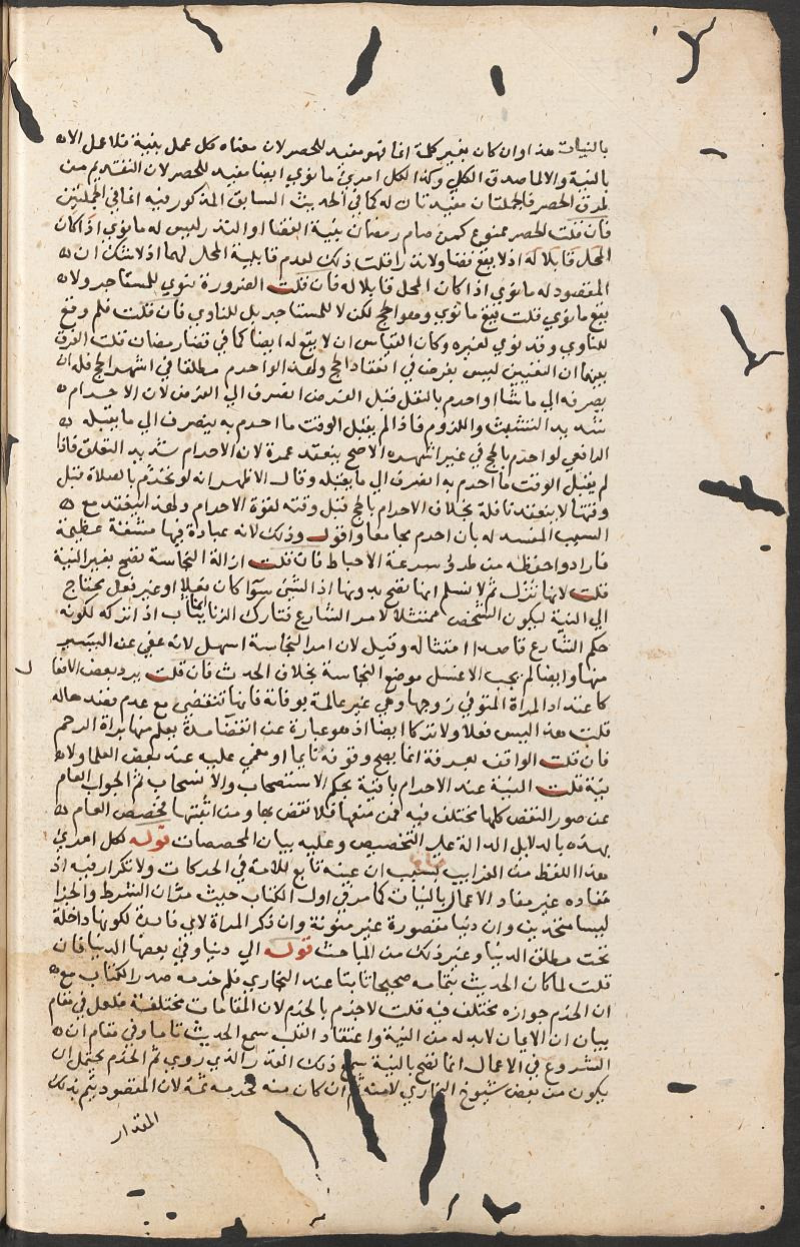 بالنيات هذا وان كان بغير كلمة انما فهو مفيد للحصر لان معناه كل عمل بنية فلا عمل الا
بالنية والا لما صدق الكلي وكذا لكل امرئ ما نوي ايضا مفيد للحصر لان التقديم من
طرق الحصر فالجملتان مفيدتان له كما في الحديث السابق المذكور فيه انما في الجملتين
فان قلت الحصر ممنوع كمن صام رمضان بنية القضا او النذر ليس له ما نوي اذا كان
المحل قابلا له اذ لا يقع قضا ولا نذرا قلت ذلك لعدم قابلية المحل لهما اذ لا شك ان
المقصود له ما نوي اذا كان المحل قابلا له فان قلت الضرورة ينوي للمستاجر ولا
يقع ما نوي قلت يقع ما نوي وهو الحج لكن لا للمستاجر بل للناوي فان قلت فلم وقع
للناوي وقد نوي لغيره وكان القياس ان لا يقع له ايضا كما في قضا رمضان قلت الفرق
بينهما ان التعيين ليس بفرض في انعقاد الحج ولهذا لو احرم مطلقا في اشهر الحج فله ان
يصرفه الي ما شا او احرم بالنفل قبل الفرض انصرف الي الفرض لان الاحرام
شديد التشبث واللزوم فاذا لم يقبل الوقت ما احرم به ينصرف الي ما يقبله
الرافعي لو احرم بالحج في غير اشهره الاصح ينعقد عمرة لان الاحرام شديد التعلق فاذا
لم يقبل الوقت ما احرم به انصرف الي ما يقبله وقال الاظهر انه لو تحرم بالصلاة قبل
وقتها لا ينعقد نافلة بخلاف الاحرام بالحج قبل وقته لقوة الاحرام ولهذا انعقد مع
السبب المفسد له بان احرم مجامعا واقول وذلك لانه عبادة فيها مشقة عظيمة
فارادوا حفظه من طرق سرعة الاحباط فان قلت ازالة النجاسة تصح بغير النية
قلت لانها تزل ثم لا نسلم انها تصح بدونها اذ الشئ سوا كان فعلا او غير فعل يحتاج
الي النية ليكون الشخص ممتثلا لامر الشارع فتارك الزنا يثاب اذا تركه لكونه
حكم الشارع قاصدا امتثاله وقيل لان امر النجاسة اسهل لانه عفي عن اليسير
منها وايضا لم يجب الا غسل موضع النجاسة بخلاف الحدث فان قلت يرد بعض
كاعتداد المراة المتوفي زوجها وهي غير عالمة بوفاته فانها تنقضي مع عدم قصد هاله
قلت هذا ليس فعلا ولا تركا ايضا اذ هو عبارة عن انقضا مدة يعلم منها براة الرحم
فان قلت الواقف بعرفة انما يصح وقوفه نايما او مغمي عليه عند بعض العلما ولا
نية قلت النية عند الاحرام باقية بحكم الاستصحاب والانسحاب ثم الجواب العام
عن صور النقض كلها مختلف فيه فمن منعها فلا نقض بها ومن اثبتها مخصص العام
بهذه بالدلايل الدالة علي التخصيص وعليه بيان المخصصات قوله لكل امرئ
هذا اللفظ من الغرايب بسبب ان عينه تابع للامه في الحركات ولا تكرار فيه اذ
مفاده غير مفاد الاعمال بالنيات كما مر في اول الكتاب حيث مر ان الشرط والجزا
ليسا متحدين وان دنيا مقصورة غير منونة وان ذكر المراة لاي فايدة لكونها داخلة
تحت مطلق الدنيا وغير ذلك من المباحث قوله الي دنيا وفي بعضها لدنيا فان
قلت لما كان الحديث بتمامه صحيحا ثابتا عند البخاري فلم خرمه صدر الكتاب مع
ان الخرم جوازه مختلف فيه قلت لا جزم بالخرم لان المقامات مختلفة فلعل في مقام
بيان ان الايمان لابد له من النية واعتقاد القلب سمع الحديث تاما وفي مقام ان
الشروع في الاعمال انما تصح بالنية سمع ذلك القدر الذي روي ثم الخرم يحتمل ان
يكون من بعض شيوخ البخاري لا منه ثم ان كان منه فخرمه ثمة لان المقصود يتم بذلك
المقدار